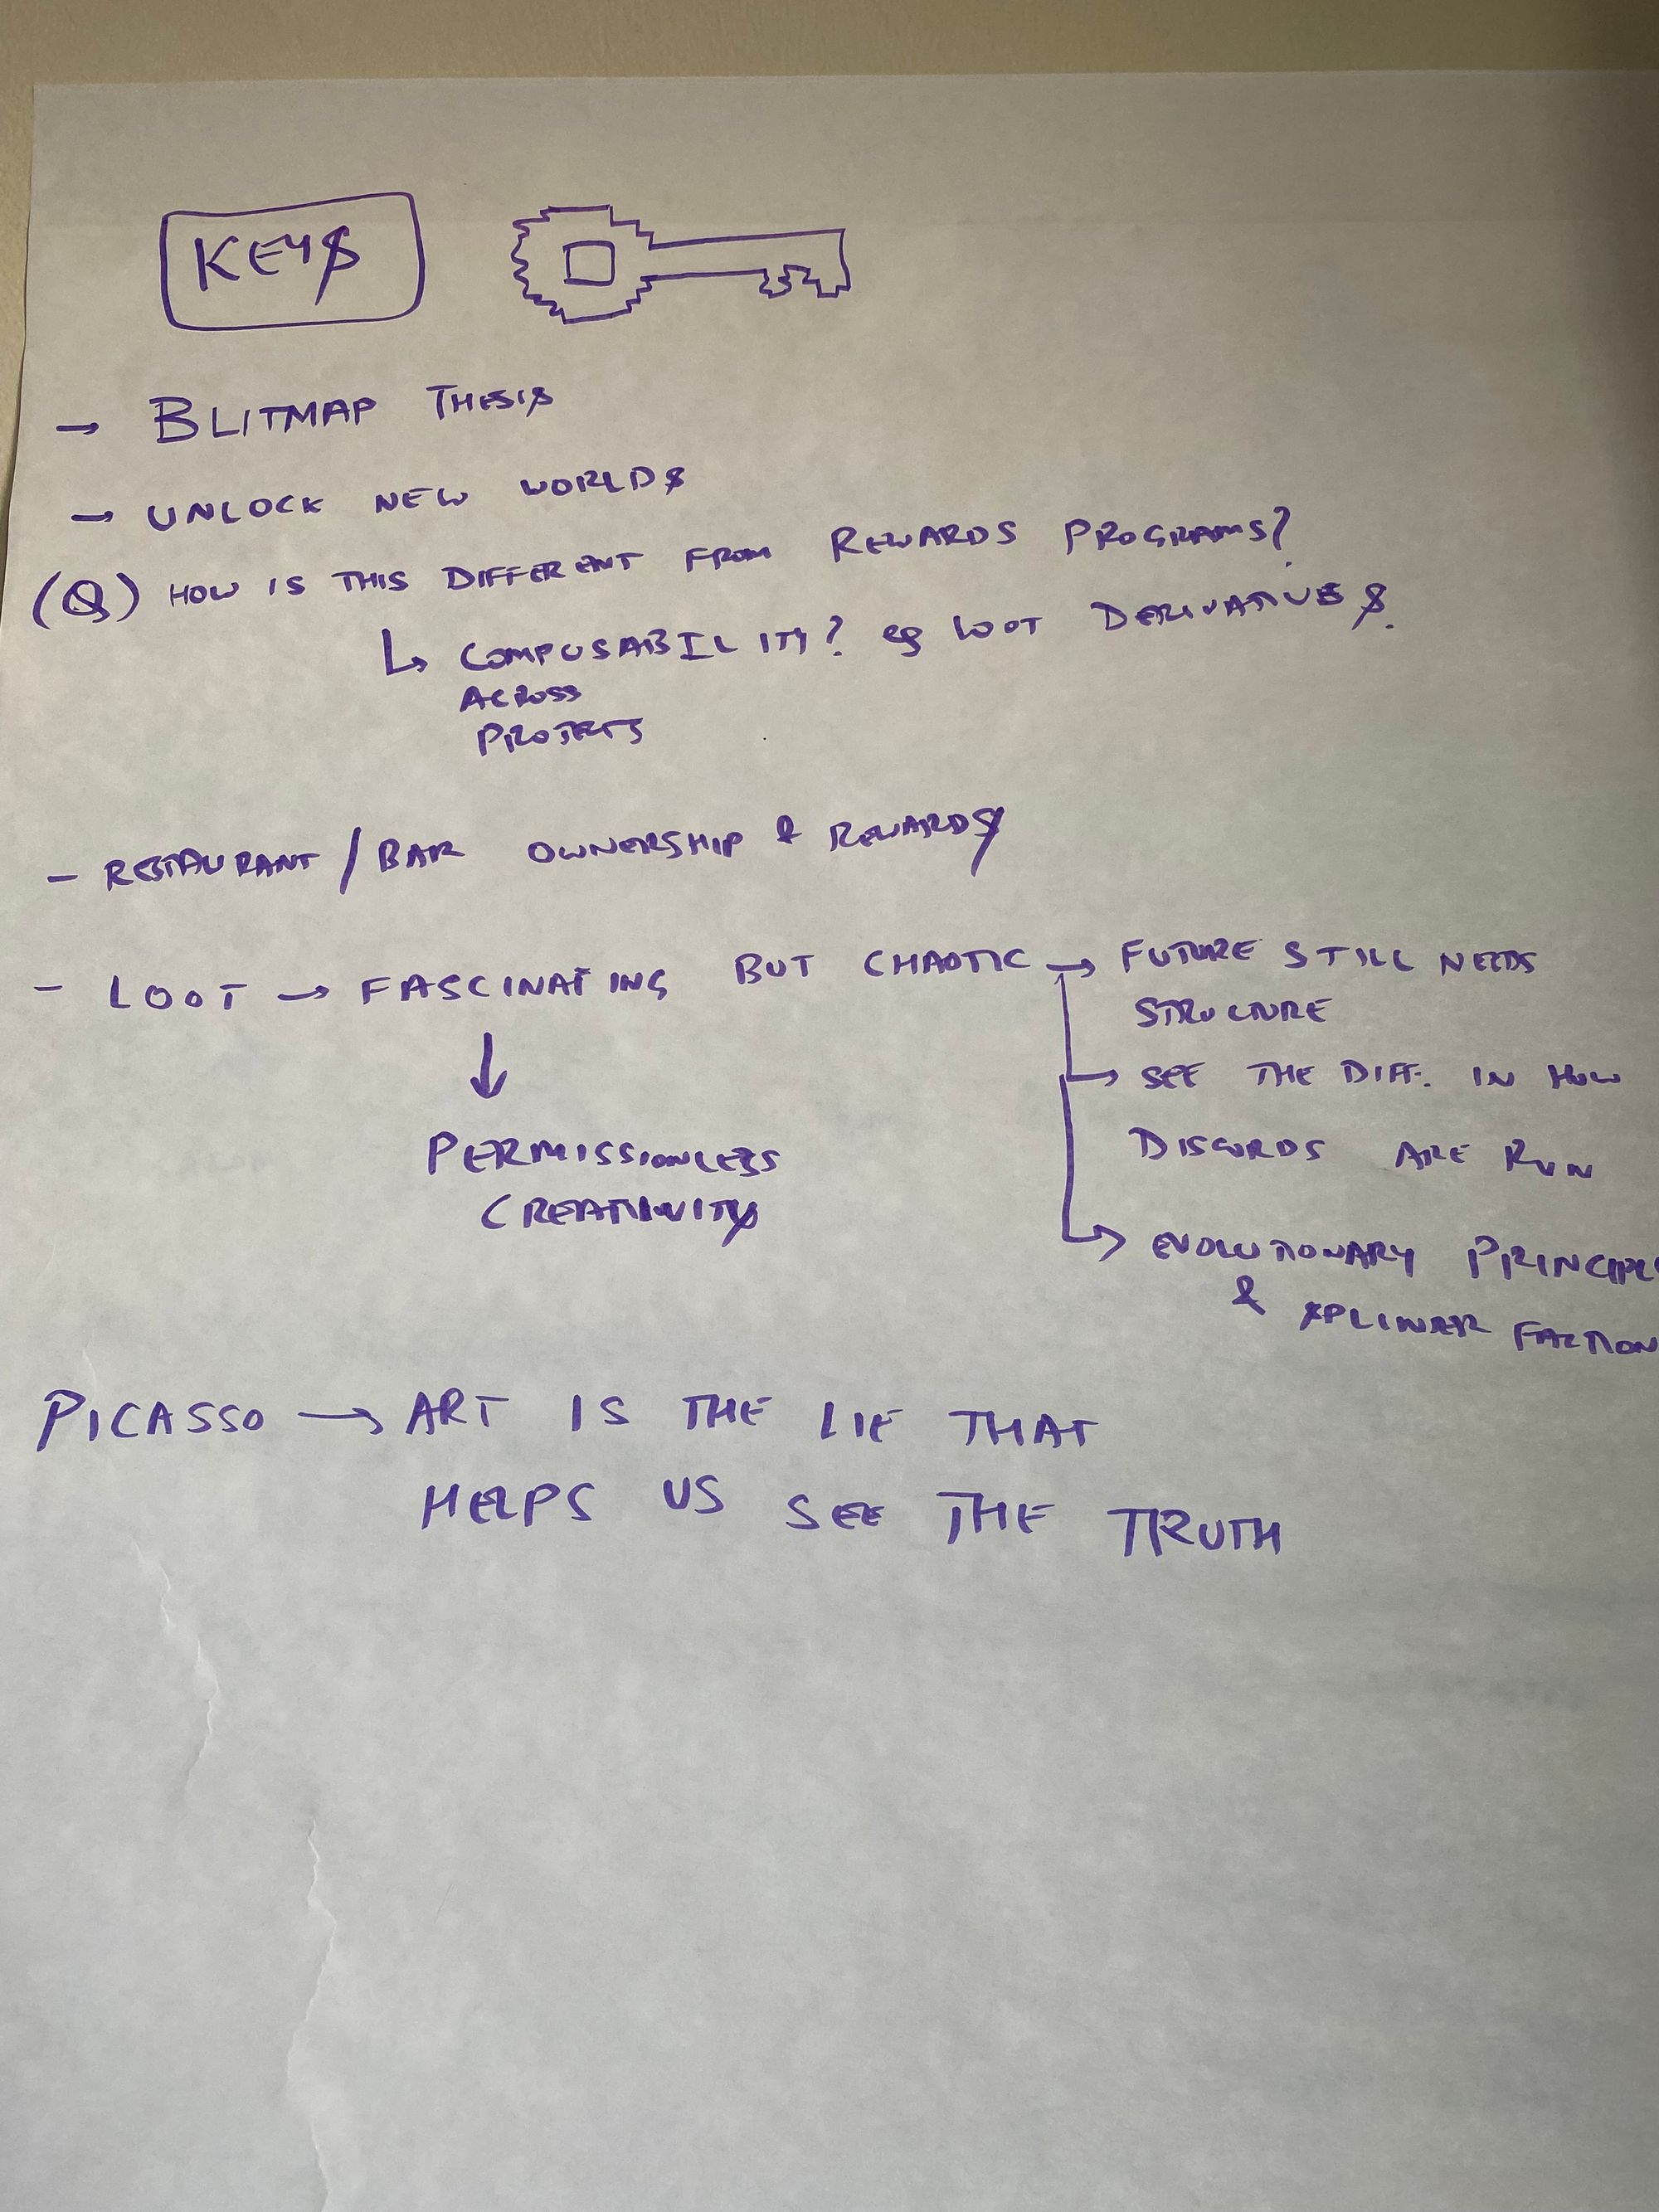 KEYS
→ BLITMAP THESIS
→ UNLOCK NEW WORLDS
(Q) HOW IS THIS DIFFERENT FROM REWARDS PROGRAMS?
↳ COMPOSABILITY? eg LOOT DERIVATIVES.
ACROSS
PROJECTS
- RESTAURANT / BAR OWNERSHIP & REWARDS
- LOOT → FASCINATING BUT CHAOTIC → FUTURE STILL NEEDS
STRUCTURE
→ SEE THE DIFF. IN HOW
DISCORDS ARE RUN
↓
PERMISSIONLESS
CREATIVITY
→ EVOLUTIONARY PRINCIPL
& SPLINTER FACTION
PICASSO → ART IS THE LIE THAT
HELPS US SEE THE TRUTH